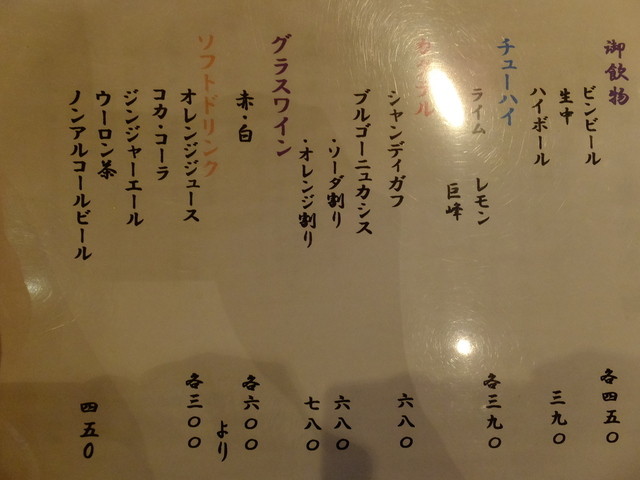 御飲物
ビンビール
生中
各四五〇
ハイボール
三九〇
チューハイ
ライム レモン
巨峰
各三九〇
カクテル
シャンディガフ
六八〇
ブルゴーニュカシス
・ソーダ割り
六八〇
・オレンジ割り
七八〇
グラスワイン
赤・白
各六〇〇
より
ソフトドリンク
オレンジジュース
各三〇〇
コカ・コーラ
ジンジャーエール
ウーロン茶
ノンアルコールビール
四五〇